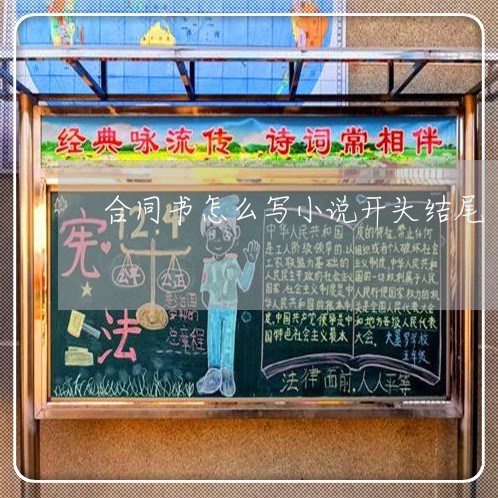 经典咏流传 诗词常相伴
合同书怎么写小说开头结尾
宪法
12.4
公平 公正
总章程
中华人民共和国
是工人阶级领导的,以
工农联盟为基础的
人民民主专政的社会主义
国家,社会主义制度是中
华人民共和国的根本制
度,中国共产党领导是中
国特色社会主义最本
质的特征,禁止任何
组织或者个人破坏社会
主义制度,中华人民共和
国的一切权利属于人民,
人民行使国家权力的机
关是全国人民代表大会
和地方各级人民代表
大会。
五年级
法律面前,人人平等